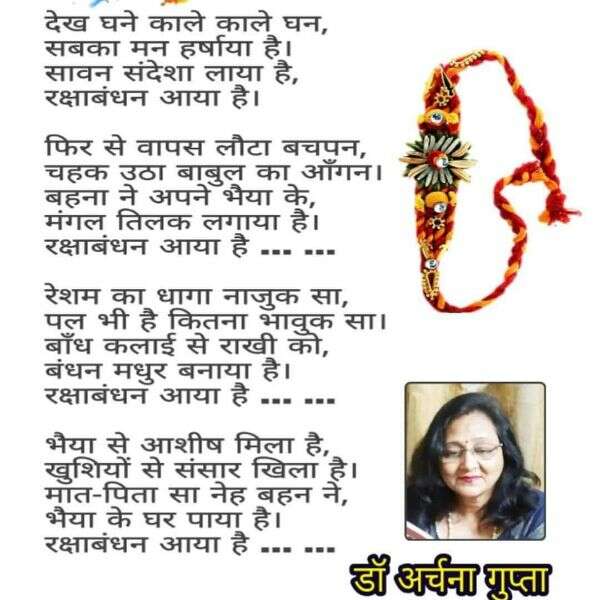 देख घने काले काले घन,
सबका मन हर्षाया है।
सावन संदेशा लाया है,
रक्षाबंधन आया है।
फिर से वापस लौटा बचपन,
चहक उठा बाबुल का आँगन।
बहना ने अपने भैया के,
मंगल तिलक लगाया है।
रक्षाबंधन आया है ... ...
रेशम का धागा नाजुक सा,
पल भी है कितना भावुक सा।
बाँध कलाई से राखी को,
बंधन मधुर बनाया है।
रक्षाबंधन आया है ... ...
भैया से आशीष मिला है,
खुशियों से संसार खिला है।
मात-पिता सा नेह बहन ने,
भैया के घर पाया है।
रक्षाबंधन आया है ... ...
डॉ अर्चना गुप्ता